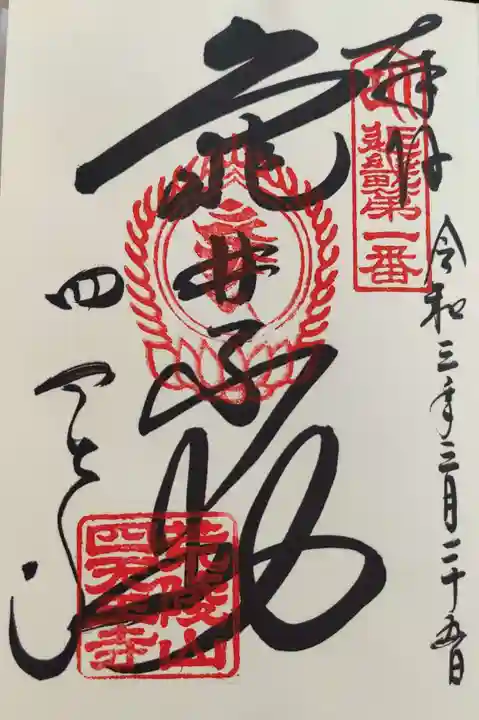 奉拝
近畿第一番
令和三年三月二十五日
亀井不動
四天王寺
荒陵山
四天王寺